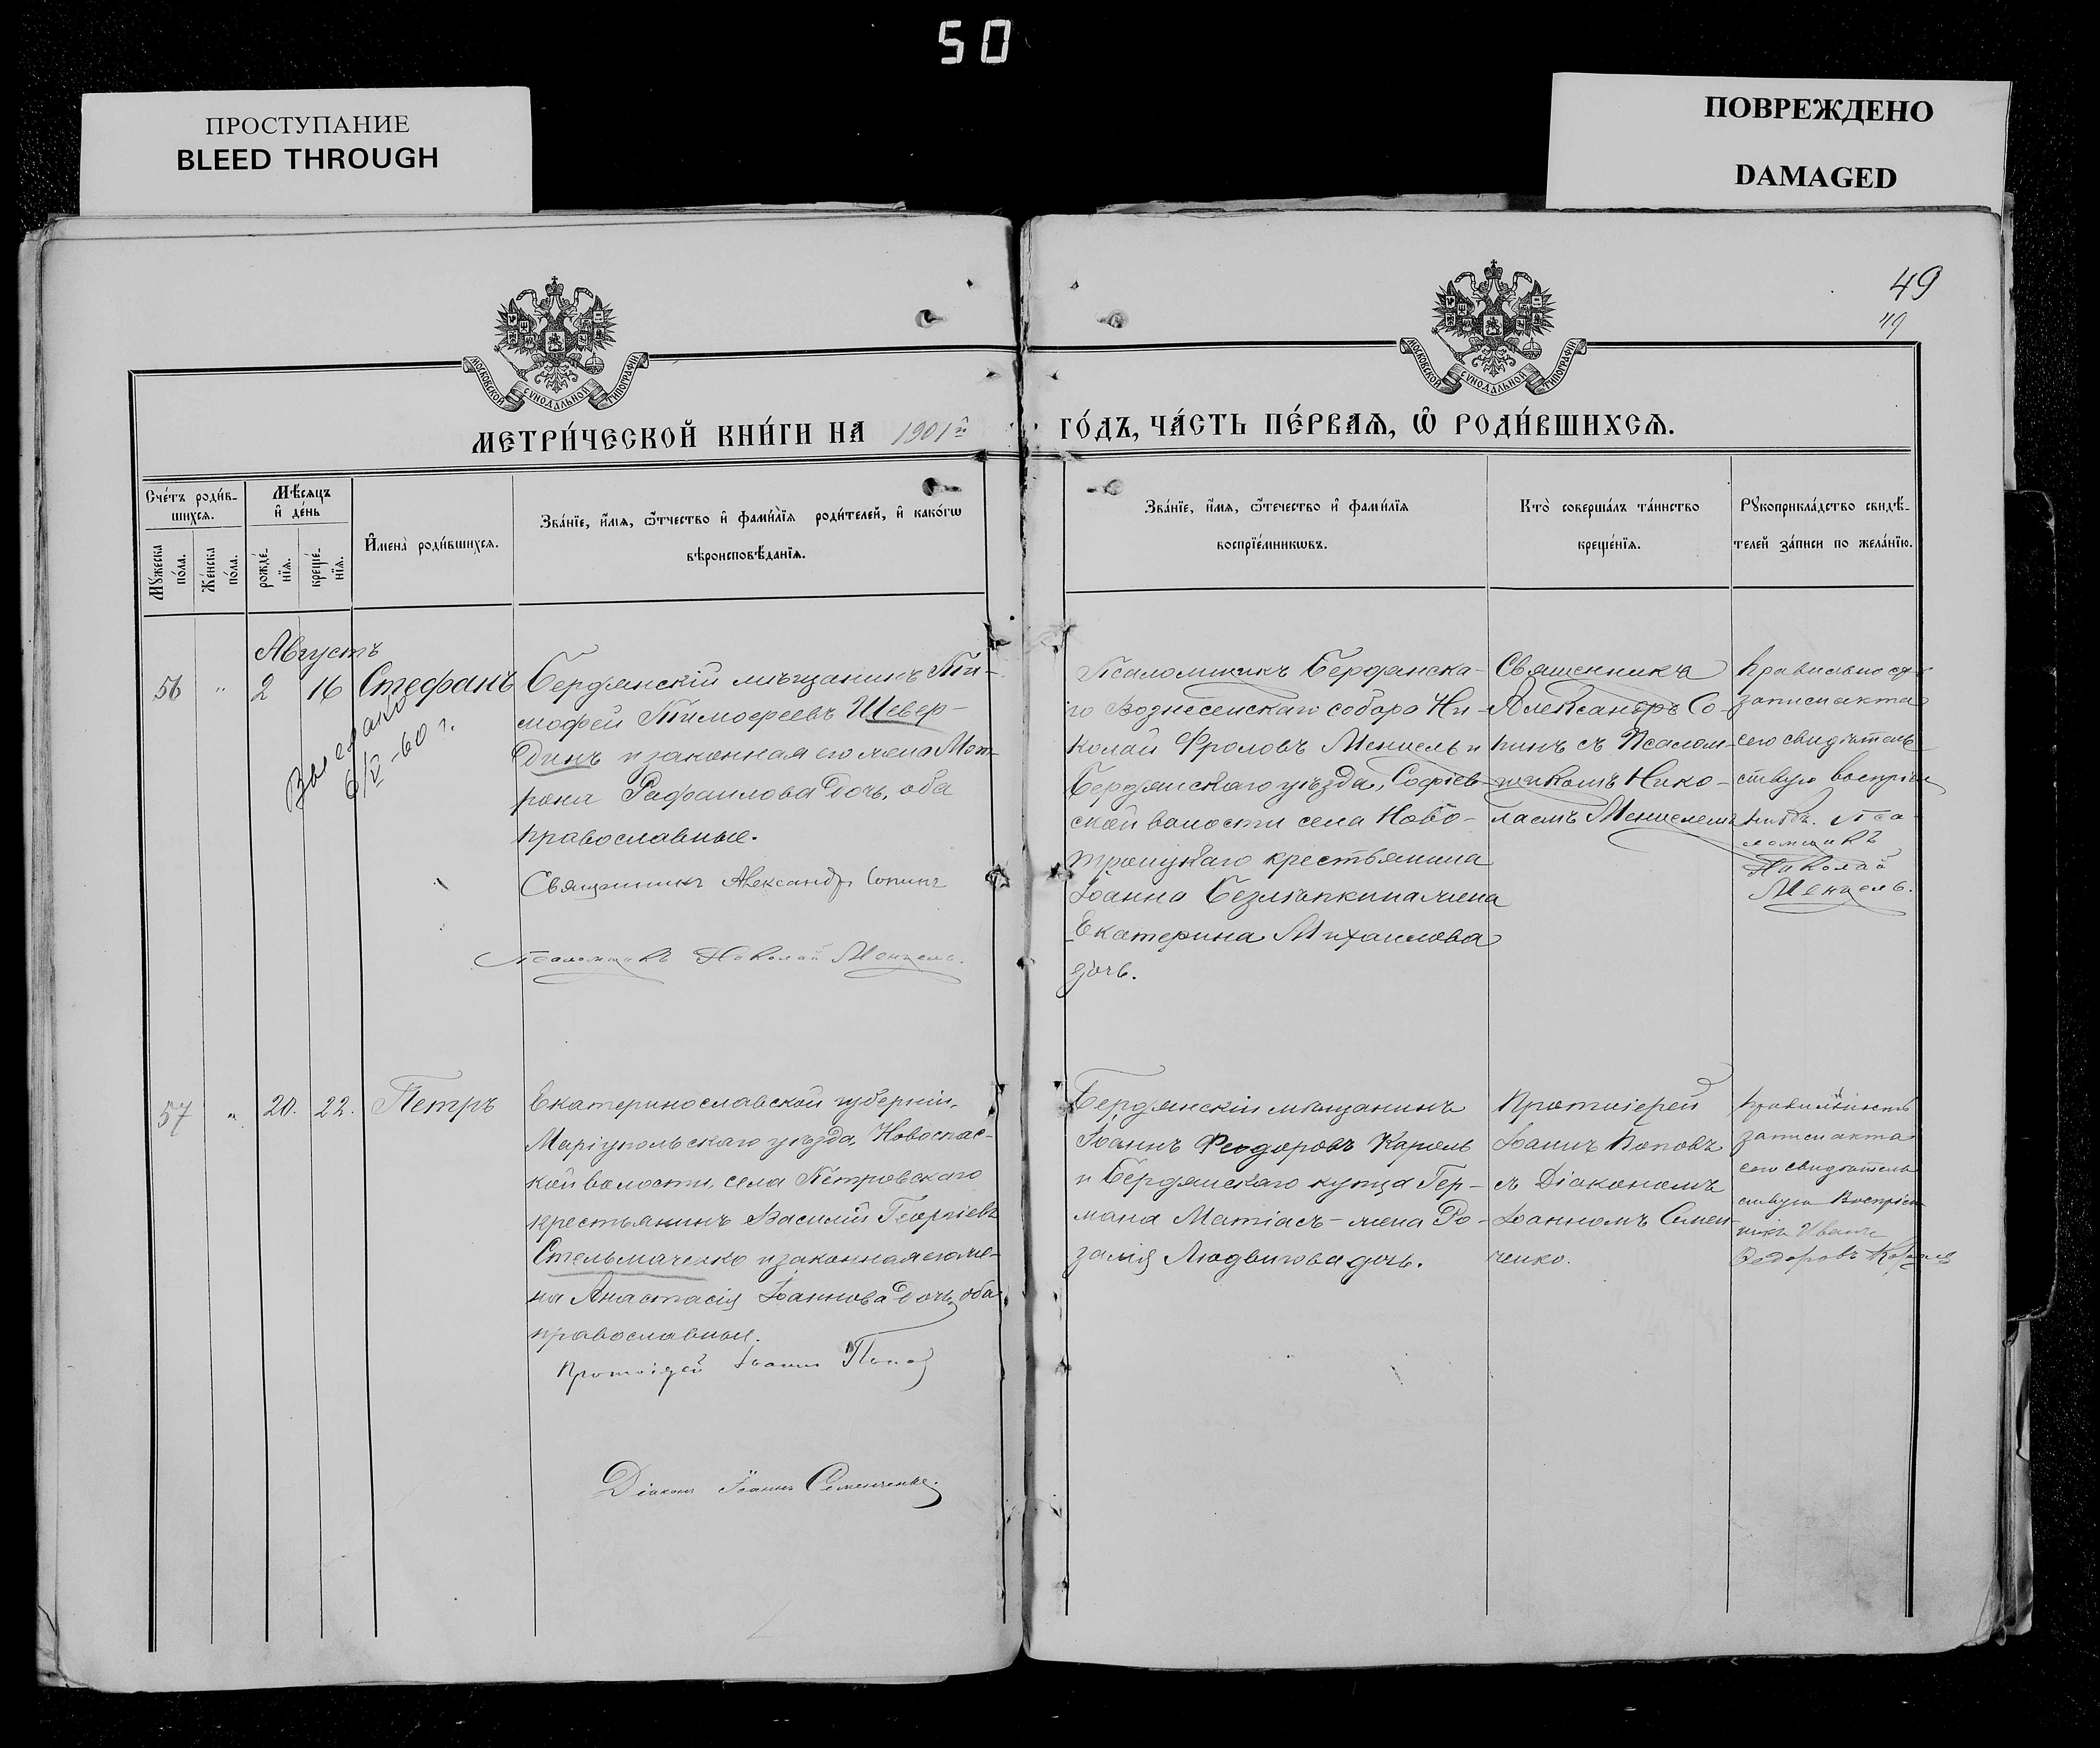 50
ПРОСТУПАНИЕ
BLEED THROUGH
ПОВРЕЖДЕНО
DAMAGED
49
49
МОСКОВСКОЙ СѴНОДАЛЬНОЙ ТИПОГРАФІИ
МОСКОВСКОЙ СѴНОДАЛЬНОЙ ТИПОГРАФІИ
МЕТРИ́ЧЕСКОЙ КНИ́ГИ НА 1901й ГО́ДЪ, ЧА́СТЬ ПЕ́РВАѦ, Ѡ РОДИ́ВШИХСѦ.
Сче́тъ роди́в-
шихсѧ.
Мꙋжеска по́ла.
Же́нска по́ла.
Мѣ́сѧцъ
и҆ де́нь
рожде́-
нїѧ.
креще́-
нїѧ.
И҆мена̀ роди́вшихсѧ.
Зва́нїе, и҆́мѧ, ѻ҆́тчество и҆ фами́лїѧ роди́телей, и҆ како́гѡ
вѣроисповѣ́данїѧ.
Зва́нїе, и҆́мѧ, ѻ҆́течество и҆ фами́лїѧ
воспрїе́мникѡвъ.
Кто̀ соверша́лъ та́инство
креще́нїѧ.
Рꙋкоприкла́дство свидѣ́-
телей за́писи по жела́нїю.
Августъ
56 " 2 16 Стефанъ
6/V-60 г.
Бердянскій мѣщанинъ Ти-
мофей Тимофеевъ Шевер-
динъ и законная его жена Мат-
рона Рафаилова дочь, оба
православные.
Священникъ Александръ Сопинъ
Псаломщикъ Николай Менцель.
Псаломщикъ Бердянска-
го Вознесенскаго собора Ни-
колай Фроловъ Менцель и
Бердянскаго уѣзда, Софіев-
ской волости села Ново-
троицкаго крестьянина
Іоанна Безлюпкина жена
Екатерина Михаилова
дочь.
Священникъ
Александръ Со-
пинъ съ Псалом-
щикомъ Нико-
лаемъ Менцелемъ
Правильность
записи акта
сего свидѣтель
ствую воспріем
никъ. Пса
ломщикъ
Николай
Менцель.
57 " 20. 22. Петръ
Екатеринославской губерніи,
Маріупольскаго уѣзда, Новоспас-
кой волости, села Петровскаго
крестьянинъ Василій Георгіевъ
Стельмаченко и законная его же-
на Анастасія Іоаннова дочь, оба
православные.
Протоіерей Іоаннъ Поповъ
Діаконъ Іоаннъ Семенченко.
Бердянскій мѣщанинъ
Іоаннъ Феодоровъ Кароль
и Бердянскаго купца Гер-
мана Матіасъ - жена Ро-
залія Людвигова дочь.
Протоіерей
Іоаннъ Поповъ
съ Діакономъ
Іоанномъ Семен-
ченко.
Правильность
записи акта
сего свидѣтель
ствую Воспріем
никъ Иванъ
Федоровъ Кароль